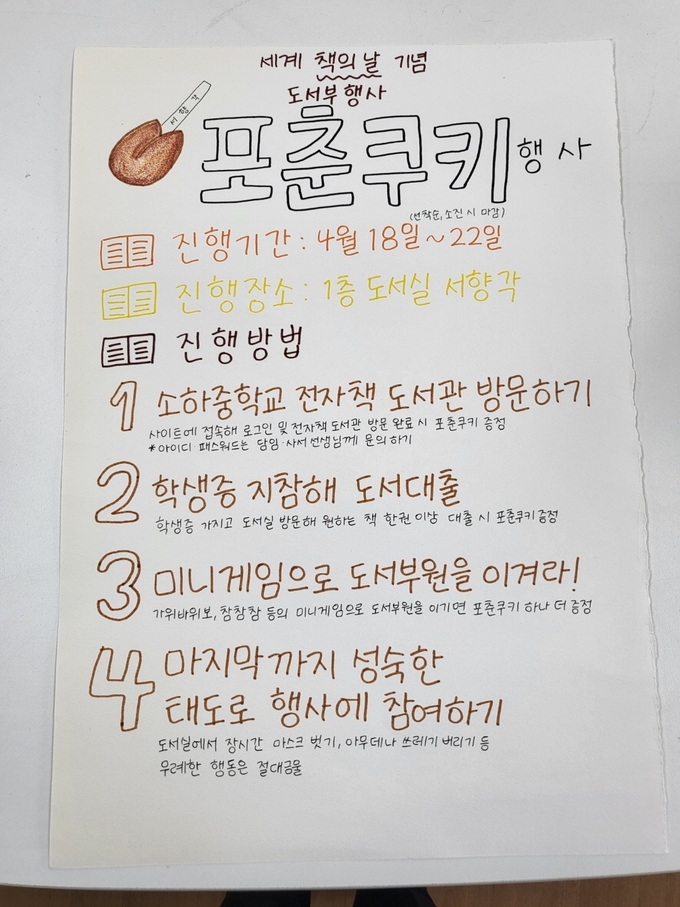 세계 책의 날 기념
도서부 행사
서향각
포춘쿠키 행사
(선착순, 소진 시 마감)
진행기간 : 4월 18일~22일
진행장소 : 1층 도서실 서향각
진행방법
1 소하중학교 전자책 도서관 방문하기
사이트에 접속해 로그인 및 전자책 도서관 방문 완료 시 포춘쿠키 증정
*아이디·패스워드는 담임·사서 선생님께 문의하기
2 학생증 지참해 도서대출
학생증 가지고 도서실 방문해 원하는 책 한권 이상 대출 시 포춘쿠키 증정
3 미니게임으로 도서부원을 이겨라!
가위바위보, 참참참 등의 미니게임으로 도서부원을 이기면 포춘쿠키 하나 더 증정
4 마지막까지 성숙한
태도로 행사에 참여하기
도서실에서 장시간 마스크 벗기, 아무데나 쓰레기 버리기 등
무례한 행동은 절대금물